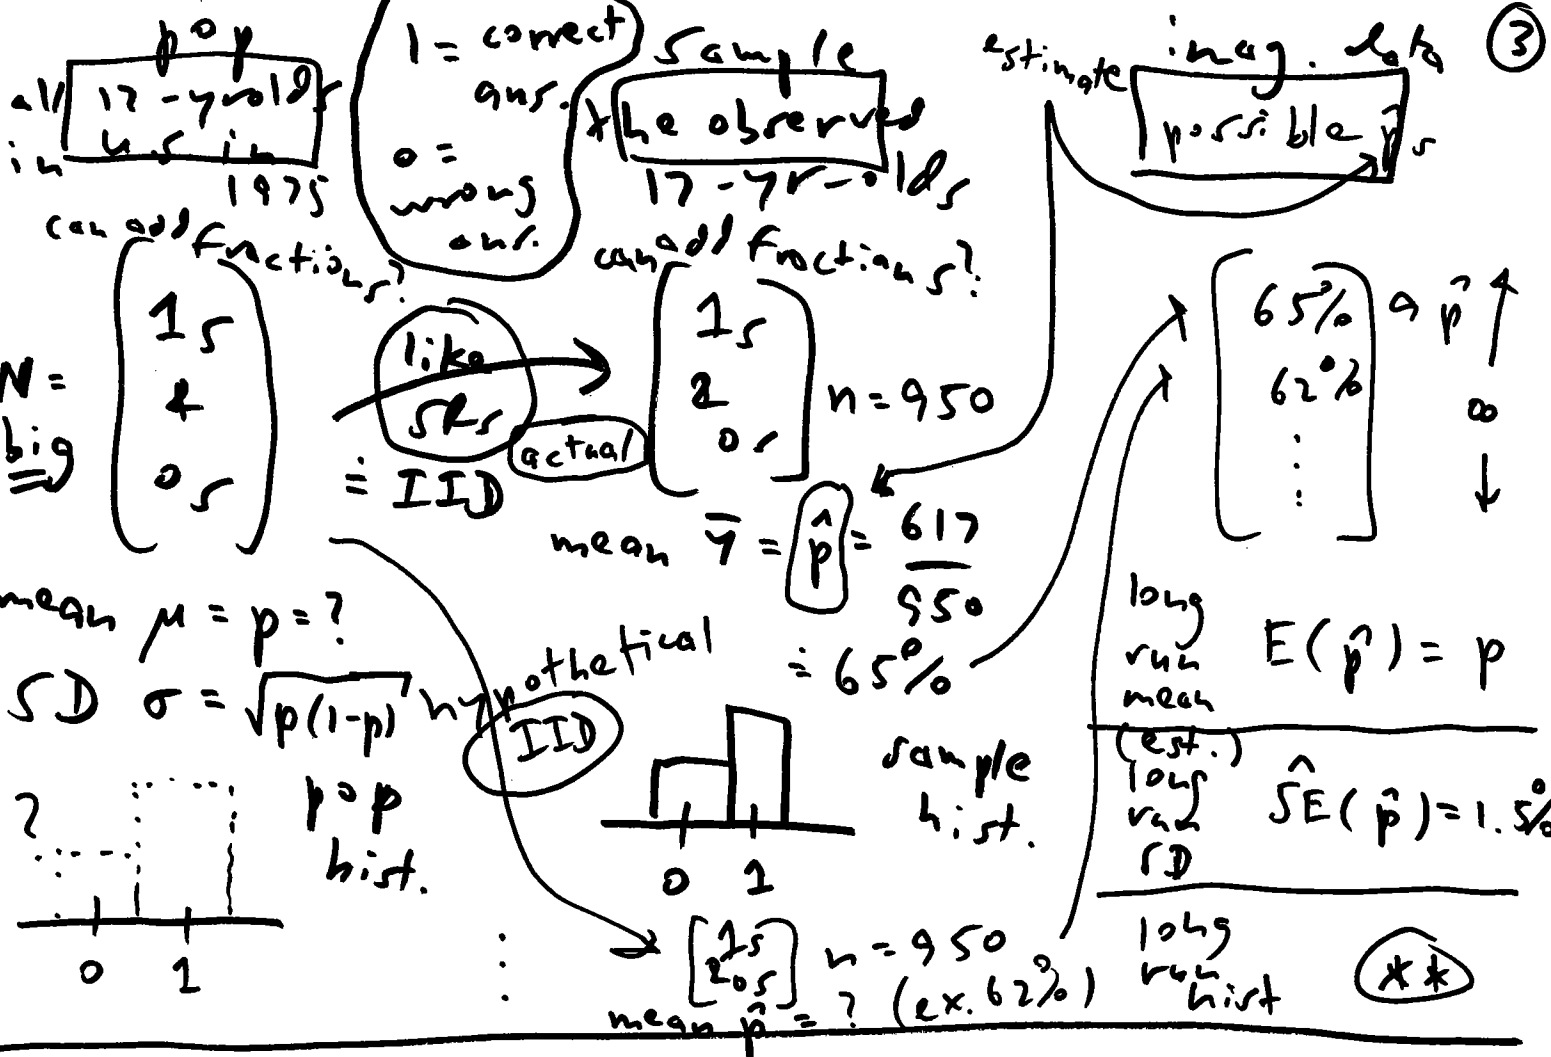 pop
all 17-yr olds
in U.S. in
1975
can add fractions?
N =
big
1s
&
0s
mean μ = p = ?
SD σ = √p(1-p)
?
pop
hist.
0 1
1 = correct
ans.
0 =
wrong
ans.
like
SRS
≐ IID
actual
hypothetical
IID
sample
the observed
17-yr-olds
can add fractions?
1s
&
0s
n = 950
mean ȳ = p̂ = 617
950
≐ 65%
sample
hist.
0 1
⋮
1s
& 0s
n = 950
mean p̂ = ? (ex. 62%)
3
imag. data
estimate
possible p̂s
65% a p̂
62%
⋮
∞
long
run
mean
E(p̂) = p
(est.)
long
run
SD
ŜE(p̂) = 1.5%
long
run
hist
**